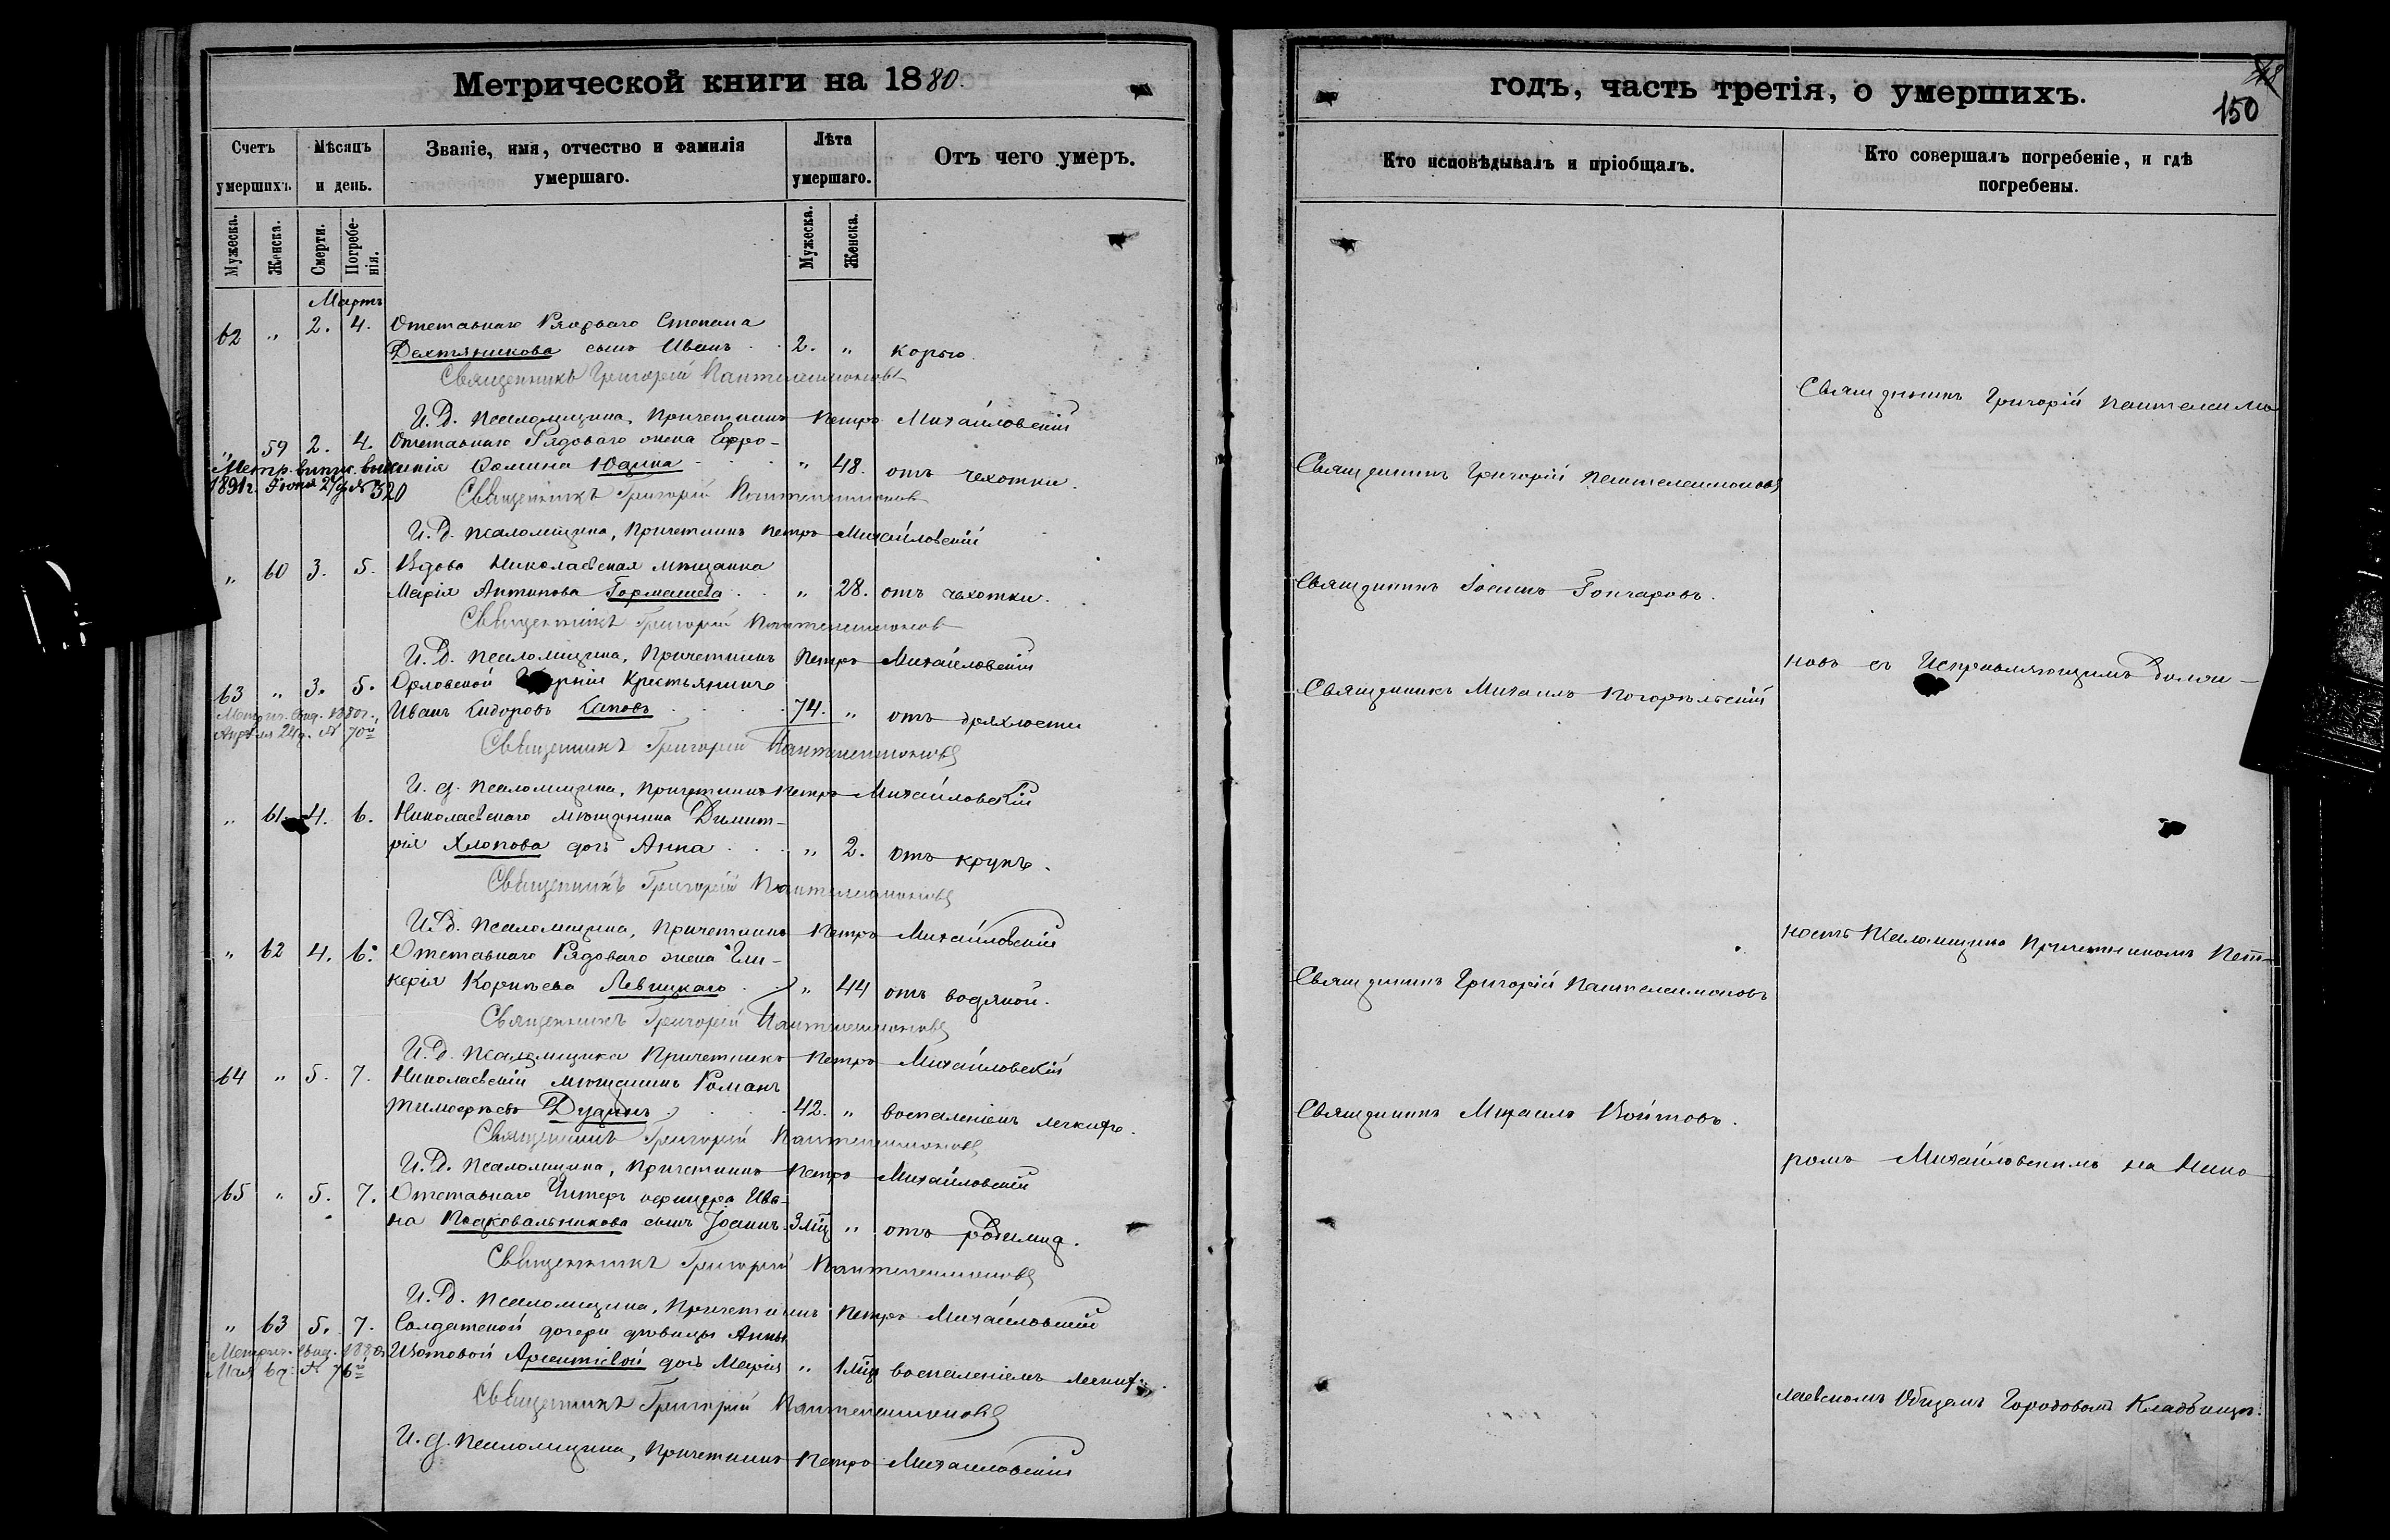 Метрической книги на 1880.
Счетъ умершихъ.
Мѣсяцъ и день.
Званіе, имя, отчество и фамилія умершаго.
Лѣта умершаго.
Отъ чего умеръ.
Мужеска.
Женска.
Смерти.
Погребенія.
Мужеска.
Женска.
Мартъ
62 " 2. 4. Отставнаго Рядоваго Степана
сынъ Иванъ 2. " корью.
Священникъ Григорій Пантелеимоновъ
И. д. псаломщика, Причетникъ Петръ Михайловскій
" 59 2. 4. Отставнаго Рядоваго жена Евфро-
Фомина Юдина " 48. отъ чехотки.
1891г. Іюня 27 д. № 320
Священникъ Григорій Пантелеимоновъ
И. д. псаломщика, Причетникъ Петръ Михайловскій
" 60 3. 5. Вдова Николаевская мѣщанка
Марія Антипова " 28. отъ чехотки.
Священникъ Григорій Пантелеимоновъ
И. д. псаломщика, Причетникъ Петръ Михайловскій
63 " 3. 5. Орловской Крестьянинъ
Иванъ Сидоровъ 74. " отъ дряхлости
Апрѣля 24 д. № 70й
Священникъ Григорій Пантелеимоновъ
И. д. псаломщика, Причетникъ Петръ Михайловскій
" 61. 4. 6. Николаевскаго мѣщанина Димит-
рія Хлопова дочь Анна " 2. отъ крупъ.
Священникъ Григорій Пантелеимоновъ
И. д. псаломщика, Причетникъ Петръ Михайловскій
" 62 4. 6. Отставнаго Рядоваго жена Гли-
керія Корнѣева Левицкаго " 44 отъ водяной.
Священникъ Григорій Пантелеимоновъ
И. д. псаломщика Причетникъ Петръ Михайловскій
64 " 5. 7. Николаевскій мѣщанинъ Романъ
Тимофѣевъ Дудинъ 42. " воспаленіемъ легкихъ.
Священникъ Григорій Пантелеимоновъ
И. д. псаломщика, Причетникъ Петръ Михайловскій
65 " 5. 7. Отставнаго Унтеръ офицера Ива-
на Подковальникова сынъ Іоаннъ 3 мц " отъ родимца.
Священникъ Григорій Пантелеимоновъ
И. д. псаломщика, Причетникъ Петръ Михайловскій
" 63 5. 7. Солдатской дочери дѣвицы Анны
Изотовой дочь Марія " 1 мц воспаленіемъ легких.
Мая 6 д. № 76й
Священникъ Григорій Пантелеимоновъ
И. д. псаломщика, Причетникъ Петръ Михайловскій
годъ, часть третія, о умершихъ.
150
Кто исповѣдывалъ и пріобщалъ.
Кто совершалъ погребеніе, и гдѣ погребены.
Священникъ Григорій Пантелеимо
Священникъ Григорій Пантелеимоновъ
Священникъ Іоаннъ Гончаровъ.
новъ съ Исправляющимъ Долж-
Священникъ Михаилъ Погорѣльскій
ность Псаломщика Причетникомъ Пет-
Священникъ Григорій Пантелеимоновъ
Священникъ Михаилъ Войтовъ.
ромъ Михайловскимъ на Нико
лаевскомъ Общемъ Городовомъ Кладбищѣ.